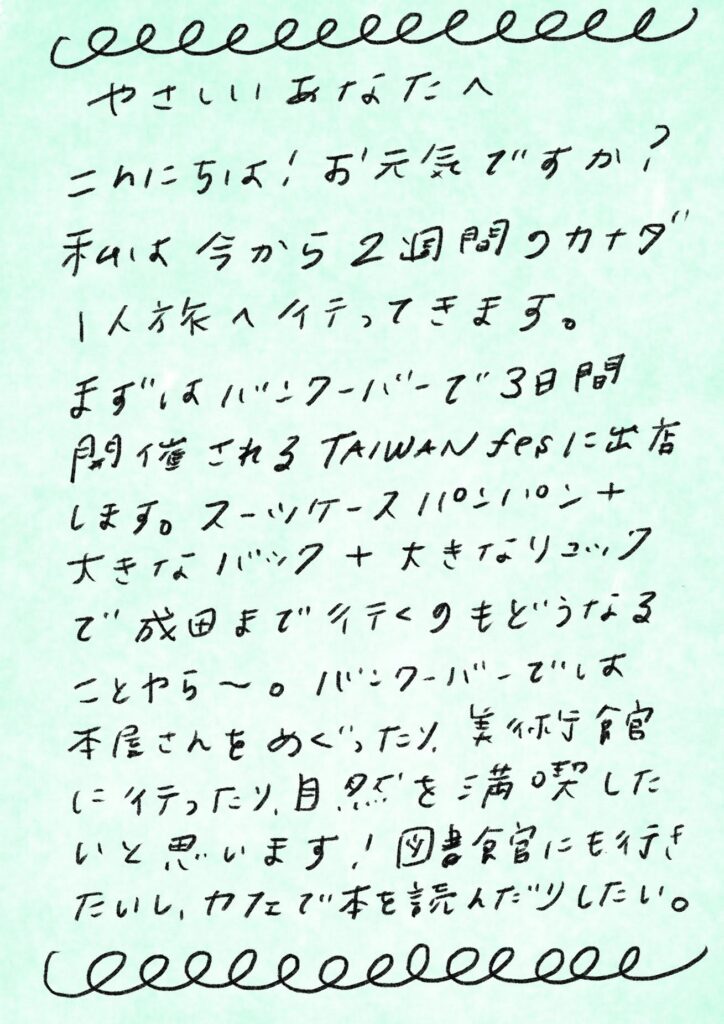 やさしいあなたへ
こんにちは！お元気ですか？
私は今から2週間のカナダ
1人旅へ行ってきます。
まずはバンクーバーで3日間
開催されるTAIWAN fesに出店
します。スーツケースパンパン＋
大きなバック＋大きなリュック
で成田まで行くのもどうなる
ことやら〜。バンクーバーでは
本屋さんをめぐったり、美術館
に行ったり、自然を満喫した
いと思います！図書館にも行き
たいし、カフェで本を読んだりしたい。